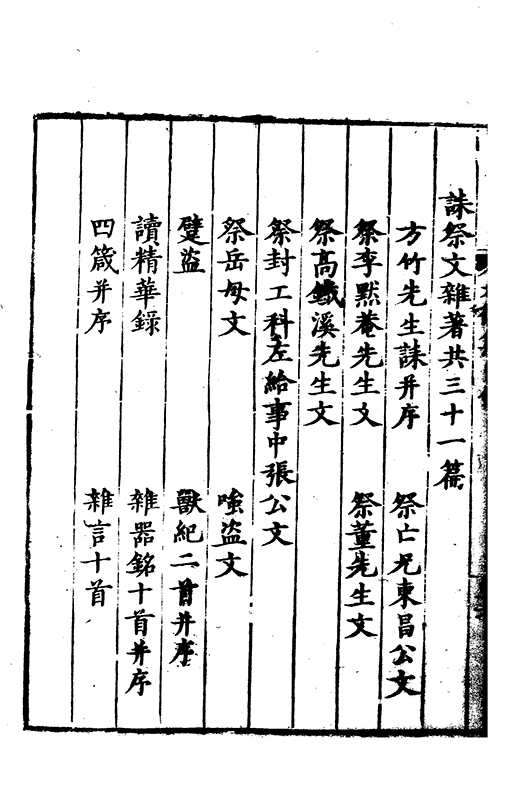 誄祭文雜著共三十一篇
方竹先生誄并序　祭亡兄東昌公文
祭李默菴先生文　祭董先生文
祭高鐵溪先生文
祭封工科左給事中張公文
祭岳母文　嗤盜文
躄盜　獸紀二首并序
讀精華錄　雜器銘十首并序
四箴并序　雜言十首